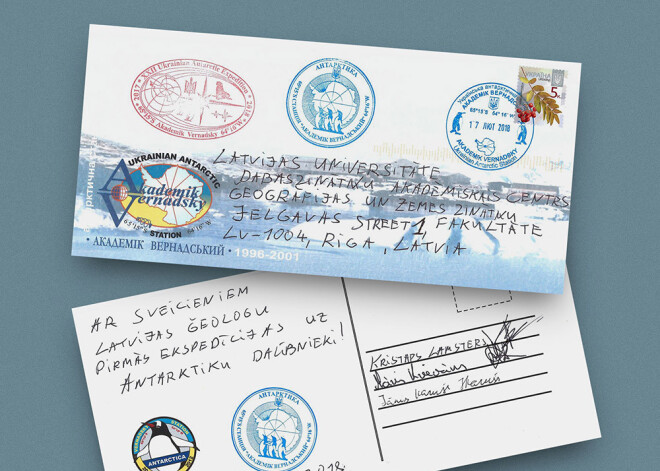 XXII Ukrainian Antarctic Expedition
2017
2018
65°15'S Akademik Vernadsky 64°16'W
АНТАРКТИКА
УКРАЇНА
5
Українська антарктична
АКАДЕМІК ВЕРНАДСЬКИЙ
65°15'S 64°16'W
17 ЛЮТ 2018
AKADEMIK VERNADSKY
Ukrainian Antarctic Station
UKRAINIAN ANTARCTIC
Akademik
Vernadsky
STATION
LATVIJAS UNIVERSITĀTE
DABASZINĀTŅU AKADĒMISKAIS CENTRS
ĢEOGRĀFIJAS UN ZEMES ZINĀTŅU
FAKULTĀTE
JELGAVAS STREET 1,
LV-1004, RĪGA, LATVIA
• АКАДЕМІК ВЕРНАДСЬКИЙ • 1996-2001
AR SVEICIENIEM
LATVIJAS ĢEOLOGU
PIRMĀS EKSPEDĪCIJAS UZ
ANTARKTIKU DALĪBNIEKI!
KRISTAPS LAMSTERS
Jānis Karušs
АНТАРКТИКА
ANTARCTICA
2018.